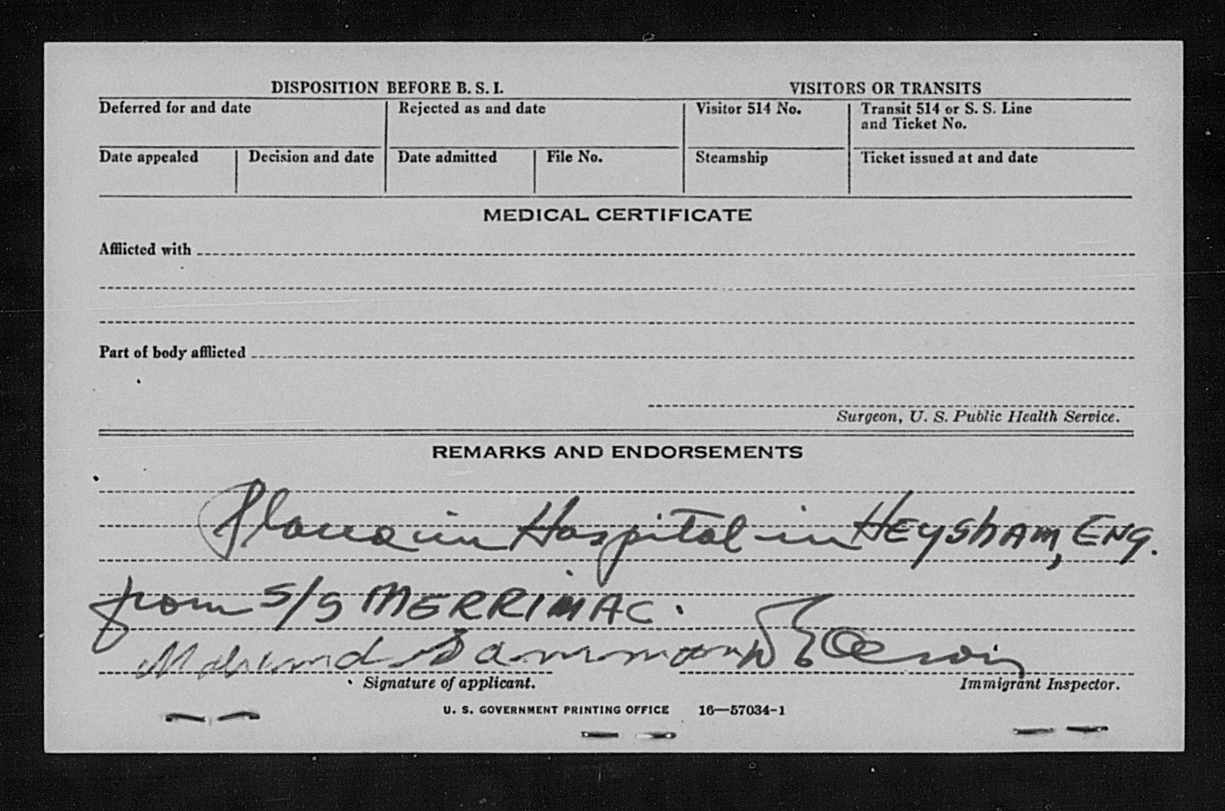 DISPOSITION BEFORE B. S. I.
VISITORS OR TRANSITS
Deferred for and date
Rejected as and date
Visitor 514 No.
Transit 514 or S. S. Line
and Ticket No.
Date appealed
Decision and date
Date admitted
File No.
Steamship
Ticket issued at and date
MEDICAL CERTIFICATE
Afflicted with
Part of body afflicted
Surgeon, U. S. Public Health Service.
REMARKS AND ENDORSEMENTS
Placed in Hospital in HEYSHAM, ENG.
from S/S MERRIMAC.
Signature of applicant.
Immigrant Inspector.
U. S. GOVERNMENT PRINTING OFFICE 16—57034-1